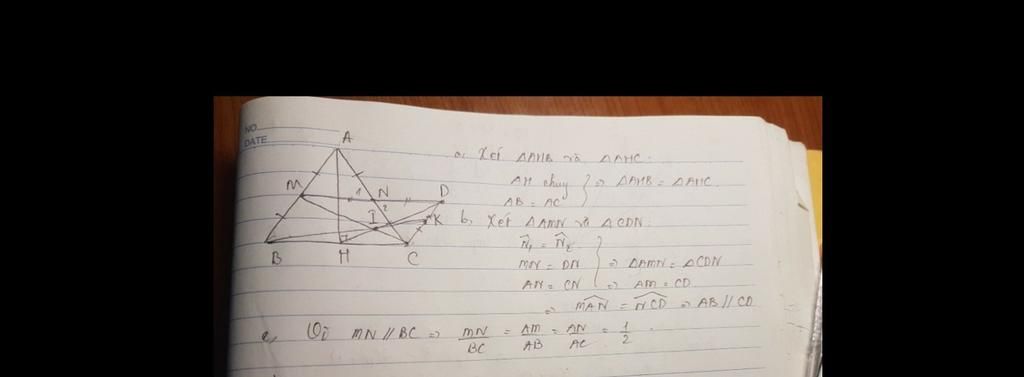 NO.
DATE
A
M
1
N
D
2
I
K
B
H
C
a, Xét ΔAHB và ΔAHC:
AH chug } => ΔAHB = ΔAHC.
AB = AC
b, Xét ΔAMN và ΔCDN:
N̂₁ = N̂₂
MN = DN } => ΔAMN = ΔCDN
AN = CN => AM = CD
=> M̂AN = N̂CD => AB // CD
c, Vì MN // BC => MN/BC = AM/AB = AN/AC = 1/2